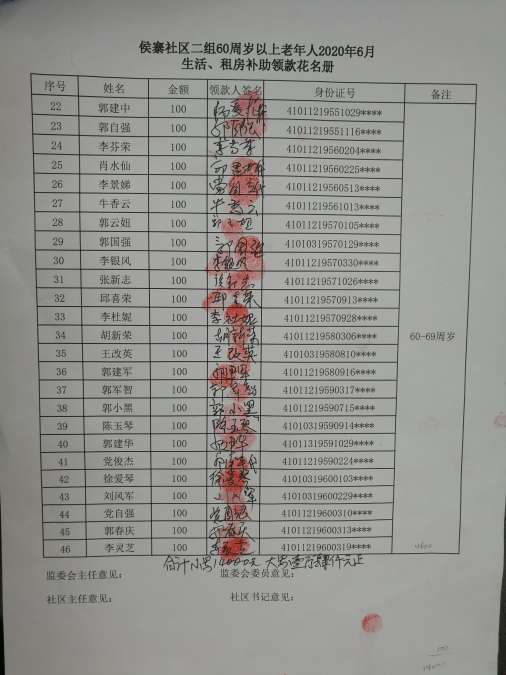 侯寨社区二组60周岁以上老年人2020年6月
生活、租房补助领款花名册
序号 姓名 金额 领款人签名 身份证号 备注
22 郭建中 100 41011219551029****
23 郭自强 100 41011219551116****
24 李芬荣 100 41011219560204****
25 肖水仙 100 41011219560225****
26 李景娣 100 41011219560513****
27 牛香云 100 牛香云 41011219561013****
28 郭云妞 100 41011219570105****
29 郭国强 100 郭国强 41010319570129****
30 李银风 100 李银风 41011219570330****
31 张新志 100 41011219571026****
32 邱喜荣 100 邱喜荣 41011219570913****
33 李杜妮 100 李杜妮 41011219570928****
34 胡新荣 100 胡新荣 41011219580306**** 60-69周岁
35 王改英 100 王改英 41010319580810****
36 郭建军 100 41011219580916****
37 郭军智 100 41011219590317****
38 郭小黑 100 郭小黑 41011219590715****
39 陈玉琴 100 陈玉琴 41010319590914****
40 郭建华 100 41011319591029****
41 党俊杰 100 41011219590224****
42 徐爱琴 100 徐爱琴 41010319600103****
43 刘风军 100 41010319600229****
44 党自强 100 党自强 41011219600310****
45 郭春庆 100 41011219600313****
46 李灵芝 100 41011219600319****
合计小写 大写壹万肆仟元正
监委会主任意见： 监委会委员意见：
社区主任意见： 社区书记意见：